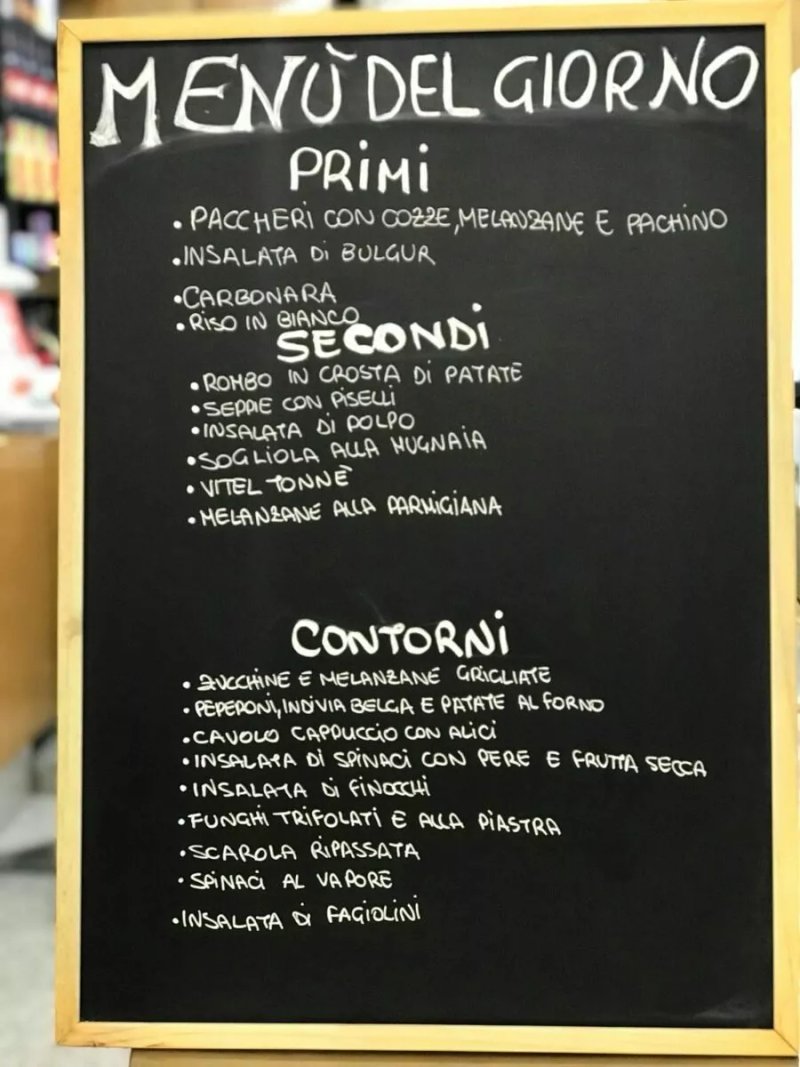 MENÙ DEL GIORNO
PRIMI
• PACCHERI CON COZZE, MELANZANE E PACHINO
• INSALATA DI BULGUR
• CARBONARA
• RISO IN BIANCO
SECONDI
• ROMBO IN CROSTA DI PATATE
• SEPPIE CON PISELLI
• INSALATA DI POLPO
• SOGLIOLA ALLA MUGNAIA
• VITEL TONNÈ
• MELANZANE ALLA PARMIGIANA
CONTORNI
• ZUCCHINE E MELANZANE GRIGLIATE
• PEPERONI, INDIVIA BELGA E PATATE AL FORNO
• CAVOLO CAPPUCCIO CON ALICI
• INSALATA DI SPINACI CON PERE E FRUTTA SECCA
• INSALATA DI FINOCCHI
• FUNGHI TRIFOLATI E ALLA PIASTRA
• SCAROLA RIPASSATA
• SPINACI AL VAPORE
• INSALATA DI FAGIOLINI